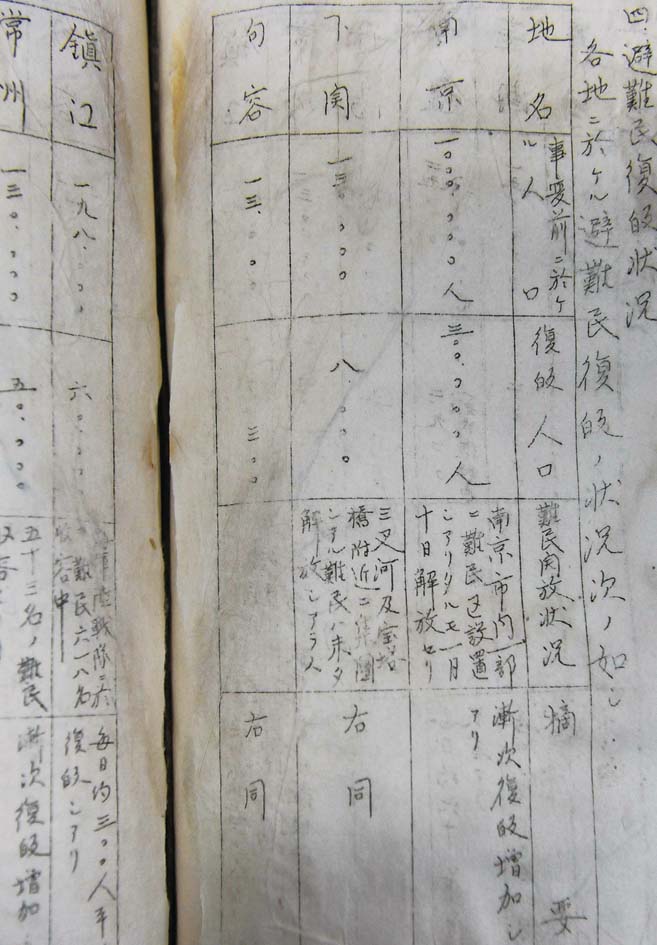 四.避難民復皈状况
各地ニ於ケル避難民復皈ノ状況次ノ如シ
地名
事変前ニ於ケ
ル人口
復皈人口
難民開放状況
摘要
南京
一〇〇〇.〇〇〇人
三〇〇.〇〇〇人
南京市内一部
ニ難民区設置
シアリタルモ一月
十日解放セリ
漸次復皈増加シ
アリ
下関
一三〇.〇〇〇
八.〇〇〇
三叉河及宝塔
橋附近ニ
シアル難民ハ未タ
解放シアラス
右同
句容
一三.〇〇〇
三〇〇
右同
鎮江
一九八.〇〇〇
六〇.〇〇〇
陸戦隊ニ於
テ難民六一八名
収容中
毎日約三〇〇人平
復皈シアリ
常州
一三〇.〇〇〇
五〇.〇〇〇
五十三名ノ難民
収容
漸次復皈増加シ